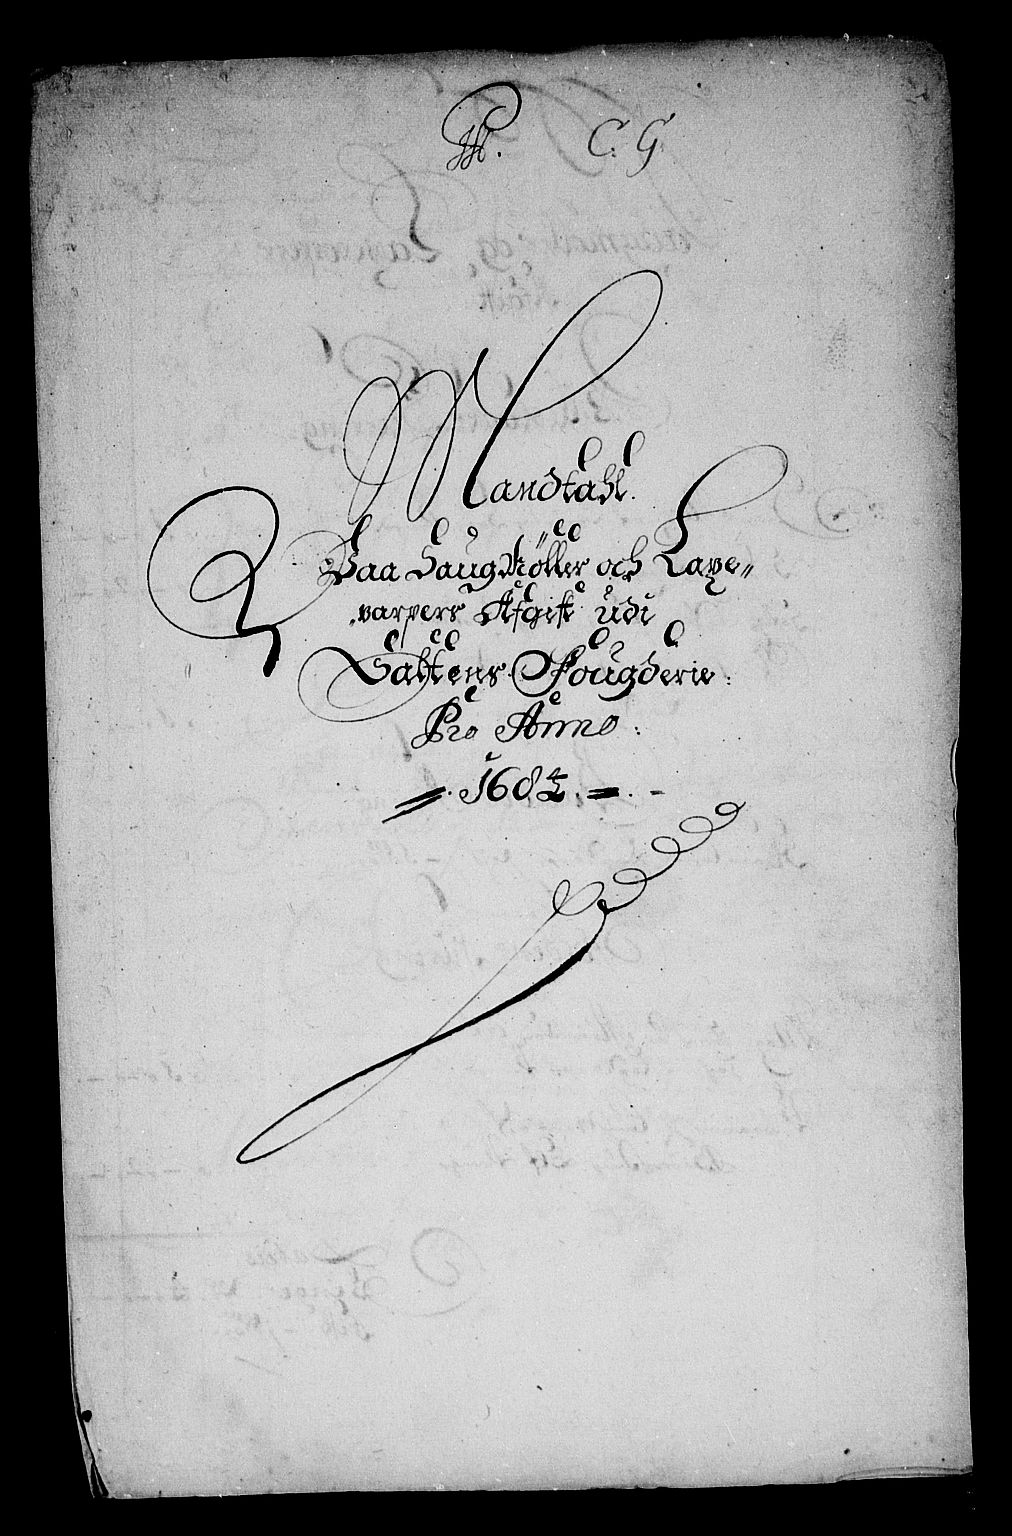 C: G
Mandtahl.
Paa Saugmöller och Laxe=
varpers Afgift udi
Saltens Fougderie.
Pro Anno.
1684.